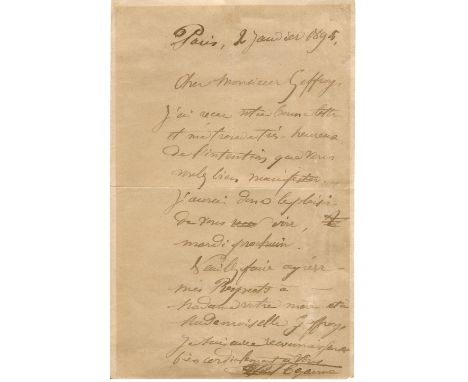 Paris, 2 Janvier 1895,
Cher Monsieur Geffroy,
J'ai recue votre bonne lettre
et me trouve très heureux
de l'intention que vous
voulez bien manifester
j'aurai donc le plaisir
de vous voire,
mardi prochain.
Veuillez faire agréer
mes Respects à
Madame votre mère et à
Mademoiselle Geffroy,
Je suis avec reconnaissance
bien cordialement à vous
Paul Cezanne